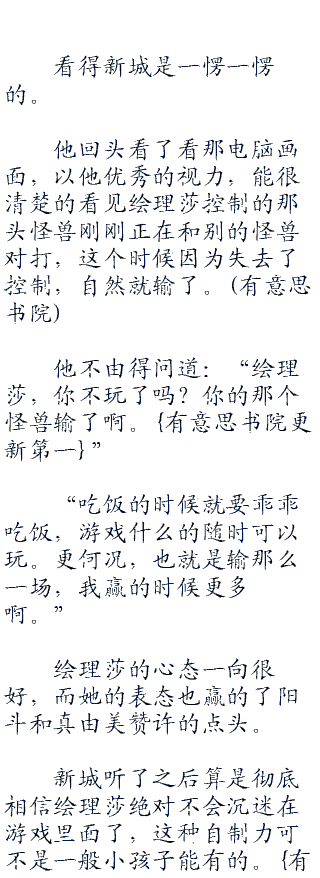 看得新城是一愣一愣
的。
他回头看了看那电脑画
面，以他优秀的视力，能很
清楚的看见绘理莎控制的那
头怪兽刚刚正在和别的怪兽
对打，这个时候因为失去了
控制，自然就输了。(有意思
书院)
他不由得问道：“绘理
莎，你不玩了吗？你的那个
怪兽输了啊。{有意思书院更
新第一}”
“吃饭的时候就要乖乖
吃饭，游戏什么的随时可以
玩。更何况，也就是输那么
一场，我赢的时候更多
啊。”
绘理莎的心态一向很
好，而她的表态也赢的了阳
斗和真由美赞许的点头。
新城听了之后算是彻底
相信绘理莎绝对不会沉迷在
游戏里面了，这种自制力可
不是一般小孩子能有的。{有